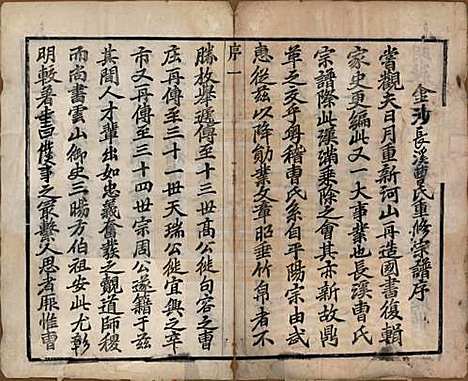 金沙長溪曹氏重修宗譜序
嘗觀天日月重新河山再造國書復輯
家史更編此又一大事業也長溪曹氏
宗譜際此漢滿乘除之會其亦新故鼎
革之交乎粵稽曹氏系自平陽宗由武
惠從茲以降勛業文章昭垂竹帛者不
序一
勝枚舉遞傳至三十世髙公徙句容之曹
庄再傳至三十一世天瑞公徙宜興之平
市又再傳至三十四世宗周公遂籍于茲
其間人才輩出如忠義奮發之觀道師稷
而尚書雲山御史三暘方伯祖安此尤彰
明較著垂曲後事之最繫人思者厥惟曹